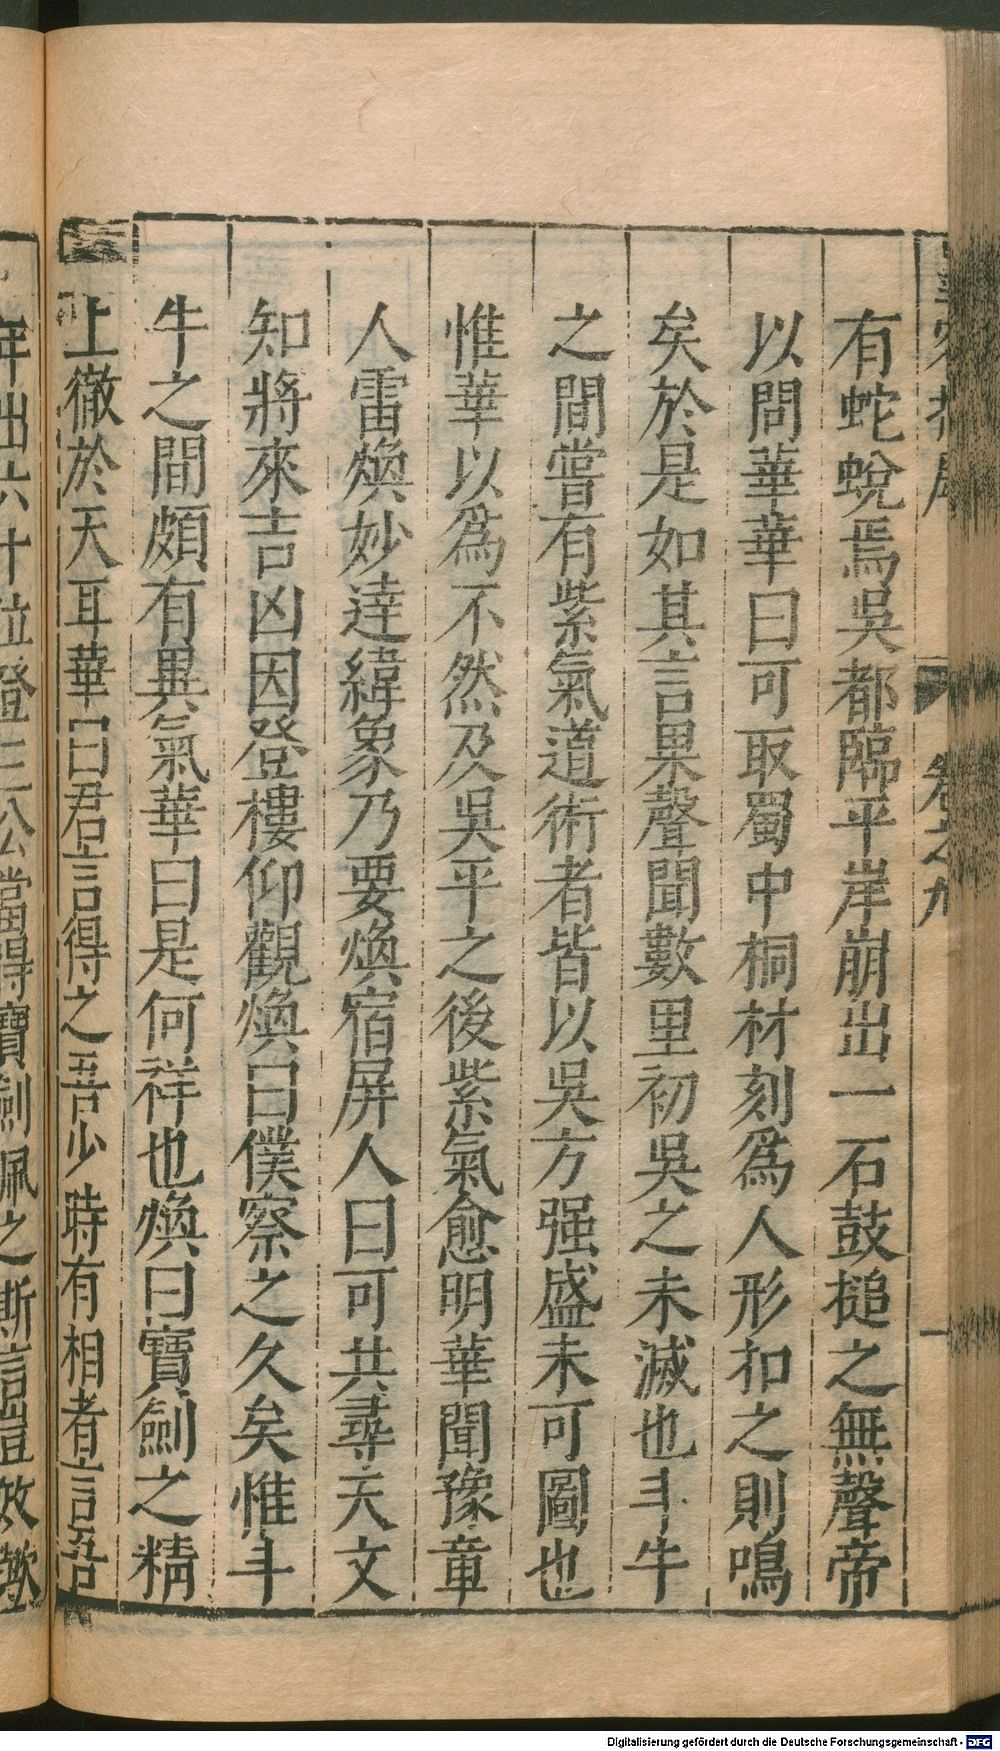 卷之九
一
有蛇蛻焉吳都臨平岸崩出一石鼓搥之無聲帝
以問華華曰可取蜀中桐材刻爲人形扣之則鳴
矣於是如其言果聲聞數里初吳之未滅也斗牛
之間嘗有紫氣道術者皆以吳方强盛未可圖也
惟華以爲不然及吳平之後紫氣愈明華聞豫章
人雷煥妙達緯象乃要煥宿屏人曰可共尋天文
知將來吉凶因登樓仰觀煥曰僕察之久矣惟斗
牛之間頗有異氣華曰是何祥也煥曰寶劍之精
上徹於天耳華曰君言得之吾少時有相者言吾
年出六十位登三公當得寶劍佩之斯言豈效歟
Digitalisierung gefördert durch die Deutsche Forschungsgemeinschaft - DFG